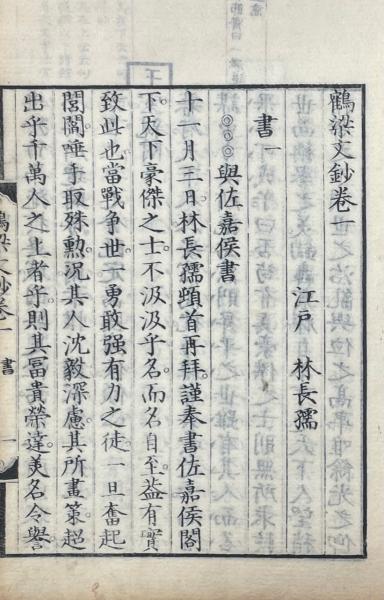 鶴梁文鈔卷一
江戸 林長孺
書一
◎◎◎與佐嘉侯書
十一月三日。林長孺頓首再拜。謹奉書佐嘉侯閤
下。天下豪傑之士。不汲汲乎名。而名自至。盖有實
致此也。當戰争世。士勇敢强有力之徒。一旦奮起
閭閻。唾手取殊勲。況其人沈毅深慮。其所畫策。超
出乎千萬人之上者乎。則其冨貴榮達。美名令譽
鶴梁文鈔卷一 書 一